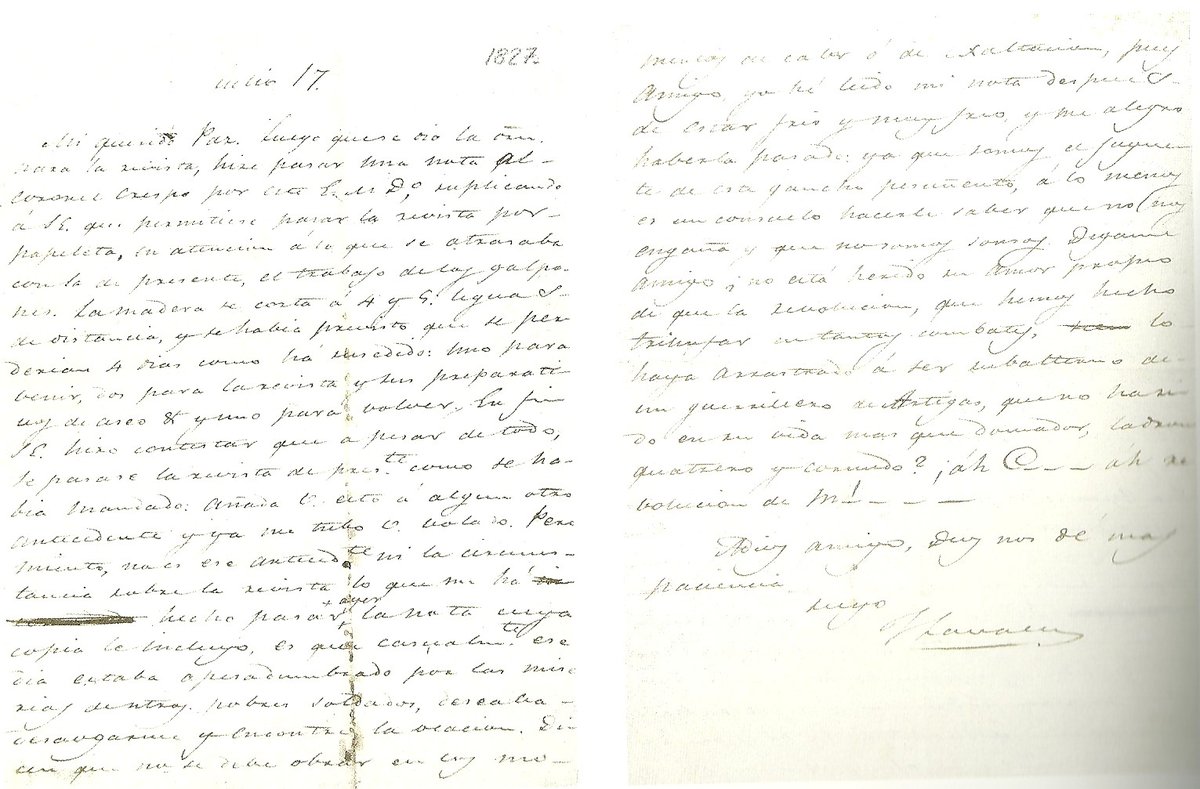 1827.
Julio 17.
Mi querido Paz. Luego que se dio la orn.
para la revista, hize pasar una nota al
coronel Crespo por este E. M. D.º suplicando
á S.E. que permitiese pasar la revista por
papeleta, en atencion á lo que se atrasaba
con la de presente, el trabajo de los galpo-
nes. La madera se corta á 4 y 5. leguas
de distancia, y se habia previsto que se per
derian 4 dias como há susedido: uno para
venir, dos para la revista y sus preparati
vos de aseo & y uno para volver. En fin
S.E. hizo contestar que a pesar de todo,
se pasase la revista de pres.te como se ha-
bia mandado: añada V. esto á algun otro
antecedente y ya me tubo V. volado. Pero
miento, no es ese anteced.te ni la circuns-
tancia sobre la revista lo que me há
hecho pasar ayer la nota cuya
copia le incluyo, es que casualm.te ese
dia estaba apesadumbrado por las mise
rias de ntros. pobres soldados, deseaba
desaogarme y encontré la ocacion. Di
cen que no se debe obrar en los mo-
mentos de calor ó de exaltacion, pues
Amigo, yo hé leido mi nota despues
de estar frio y muy frio, y me alegro
haberla pasado: ya que somos el jugue
te de este gaucho , á lo menos
es un consuelo hacerle saber que no nos
engaña y que no somos sonsos. Digame
Amigo, no está herido su amor propio
de que la revolucion, que hemos hecho
triunfar en tantos combates, lo
haya arrastrado á ser subalterno de
un guerrillero de Artigas, que no ha si
do en su vida mas que domador, ladron
quatrero y cornudo? ¡áh C--- áh re
volucion de M!----
Adios amigo, Dios nos dé mas
paciencia
suyo
Lavalle